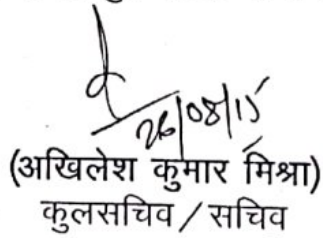 26/08/15
(अखिलेश कुमार मिश्रा)
कुलसचिव / सचिव